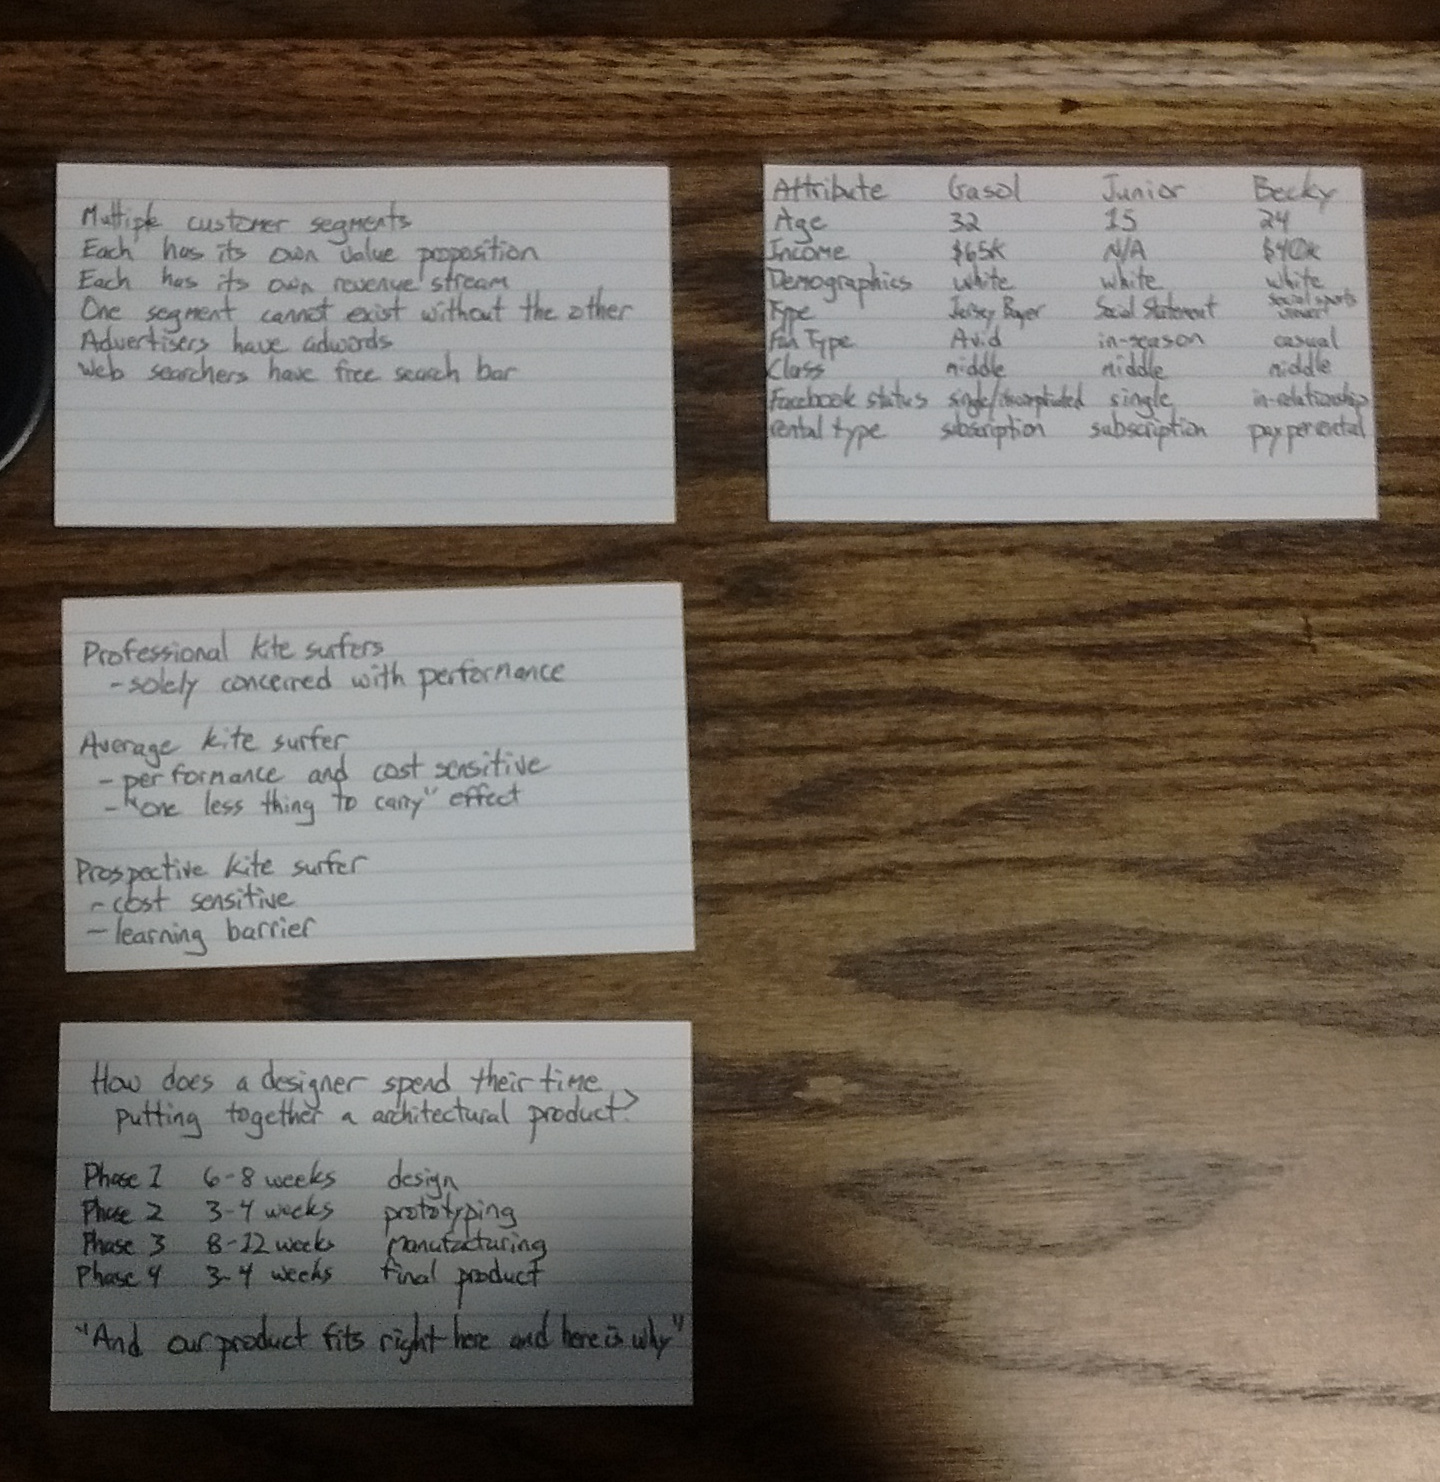 Multiple customer segments
Each has its own value proposition
Each has its own revenue stream
One segment cannot exist without the other
Advertisers have adwords
Web searchers have free search bar
Attribute Gasol Junior Becky
Age 32 15 24
Income $65K N/A $40K
Demographics white white white
Type Jersey Buyer Social Statement social sports
Fan Type Avid in-season casual
Class middle middle middle
Facebook status single/ single in-relationship
rental type subscription subscription pay per rental
Professional kite surfers
- solely concerned with performance
Average kite surfer
- performance and cost sensitive
- "one less thing to carry" effect
Prospective kite surfer
- cost sensitive
- learning barrier
How does a designer spend their time
putting together a architectural product?
Phase 1 6-8 weeks design
Phase 2 3-4 weeks prototyping
Phase 3 8-12 weeks manufacturing
Phase 4 3-4 weeks final product
"And our product fits right here and here is why"